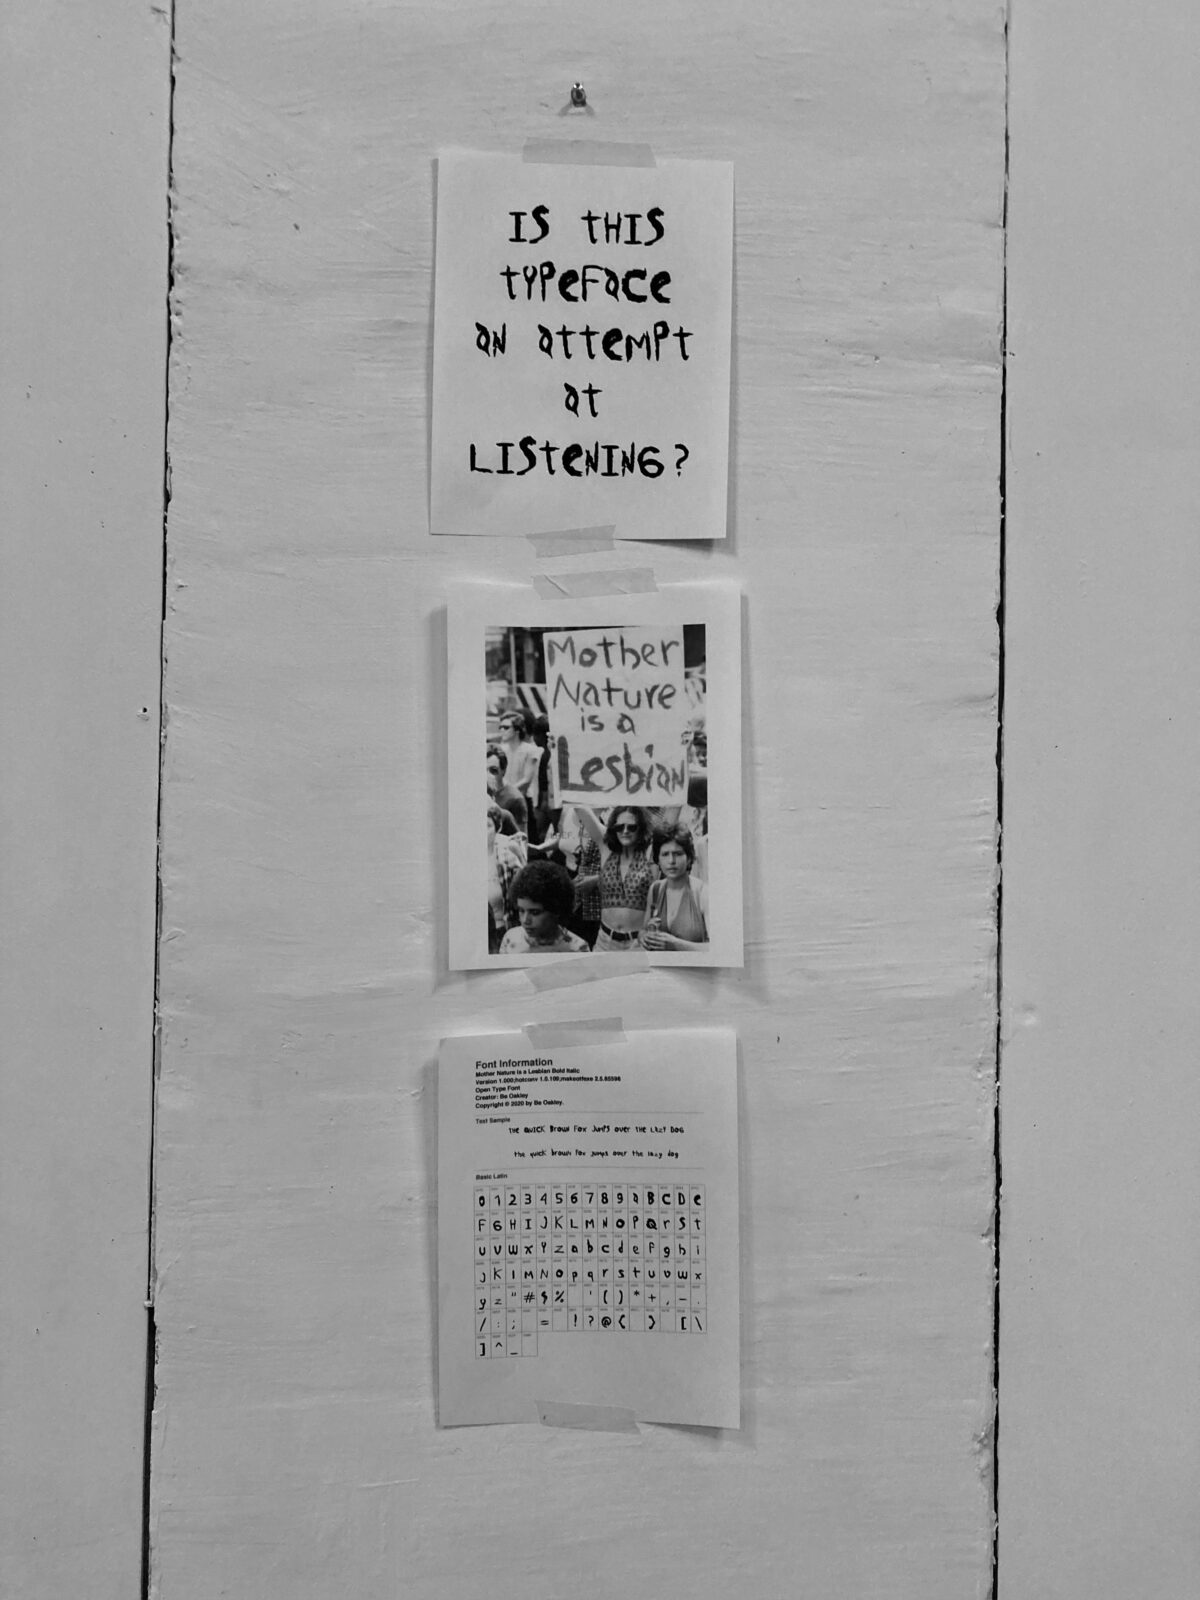 IS tHIS
tYPeFace
aN attemPt
at
LISteNING?
Mother
Nature
is a
Lesbian
Font Information
Mother Nature is a Lesbian Bold Italic
Version 1.000;hotconv 1.0.109;makeotfexe 2.5.65596
Open Type Font
Creator: Be Oakley
Copyright © 2020 by Be Oakley.
Text Sample
tHe QUICK Brown Fox JUMPS over tHe LaZY DOG
the quick brown fox jumps over the lazy dog
Basic Latin
0 1 2 3 4 5 6 7 8 9 a B C D e
F G H I J K L M N O P Q r S t
U V W X Y Z a b c d e f g h i
j K l M N o p q r s t u v w x
y z " # $ % ' ( ) * + , - .
/ : ; = ! ? @ { } [ \
] ^ _